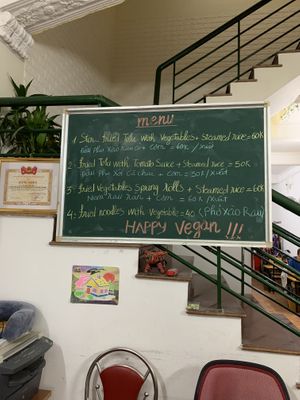 menu
1. Stew fried Tofu with Vegetables + Steamed rice = 60K
Đậu phụ xào rau củ + cơm = 60K / suất
2. Fried Tofu with Tomato Sauce + Steamed rice = 50K
Đậu phụ sốt cà chua + cơm = 50K / suất
3. Fried Vegetables Spring Rolls + Steamed rice = 60K
Nem rau rán + cơm = 60K / suất
4. Fried noodles with Vegetable = 40 (Phở xào Rau)
HAPPY Vegan !!!